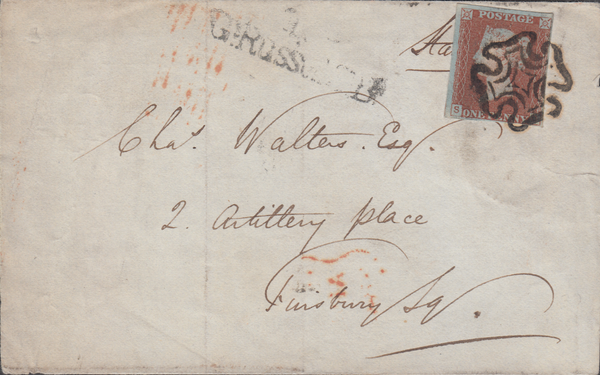 G.Russell St
POSTAGE
S
ONE PENNY
Chas. Walters. Esq.
2. Artillery place
Finsbury Sq.